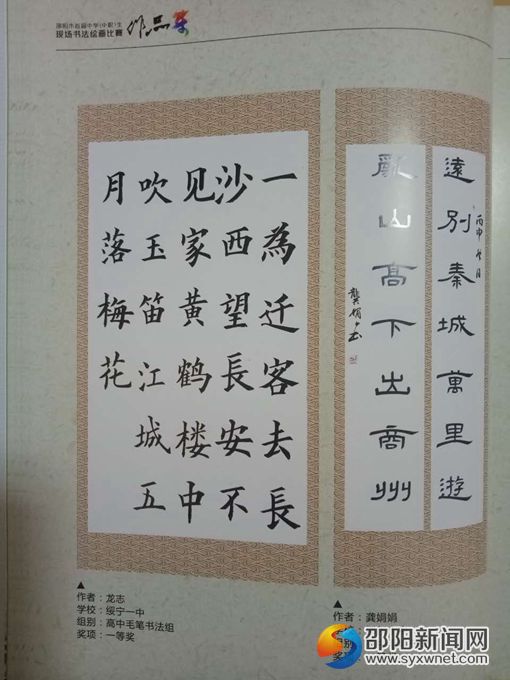 邵阳市首届中学(中职)生
现场书法绘画比赛
作品集
一為迁客去長
沙西望長安不
见家黄鹤楼中
吹玉笛江城五
月落梅花
遠別秦城萬里遊
丙申
亂山高下出商州
龔娟々书
作者：龙志
学校：绥宁一中
组别：高中毛笔书法组
奖项：一等奖
作者：龚娟娟
邵阳新闻网
www.syxwnet.com